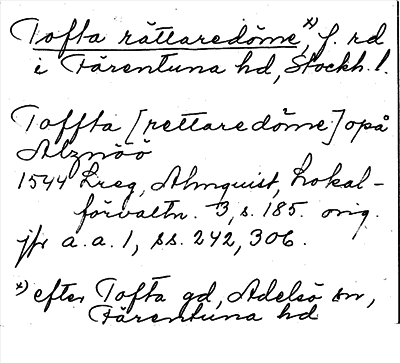 Tofta rättaredöme,*) f. rd
i Färentuna hd, Stockh. l.
Toffta [rettaredöme] opå
Alznöö
1544 Lreg, Almquist, Lokal-
förvaltn. 3, s. 185. orig.
jfr a. a. 1, ss. 242, 306.
*) efter Tofta gd, Adelsö sn,
Färentuna hd